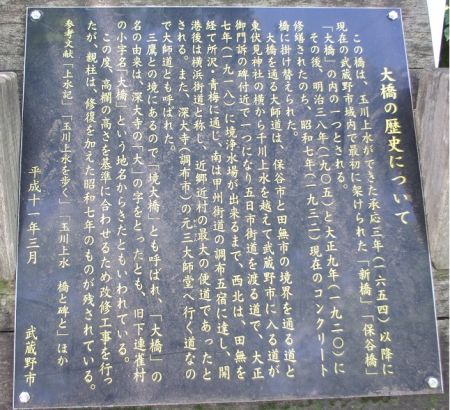 大橋の歴史について
この橋は、玉川上水ができた承応三年（一六五四）以降に
現在の武蔵野市域内で最初に架けられた「新橋」「保谷橋」
「大橋」の内の一つとされる。
その後、明治三八年（一九〇五）と大正九年（一九二〇）に
修繕されたのち、昭和七年（一九三二）現在のコンクリート
橋に掛け替えられた。
大橋を通る大師道は、保谷市と田無市の境界を通る道と
東伏見神社の横から千川上水を越えて武蔵野市に入る道が
御門訴の碑付近で一つになり五日市街道を渡る道で、大正
七年（一九一八）に境浄水場が出来るまで、西北は、田無を
経て所沢・青梅に通じ、南は甲州街道の調布五宿に達し、開
港後は横浜街道と称し、近郷近村の最大の便道であったと
される。また、深大寺（調布市）の元三大師堂へ行く道なの
で大師道とも呼ばれた。
三鷹との境にあるので「境大橋」とも呼ばれ、「大橋」の
名の由来は、深大寺の「大」の字をとったとも、旧下連雀村
の小字名「大橋」という地名からきたともいわれている。
この度、高欄の高さを基準に合わせるため改修工事を行っ
たが、親柱は、修復を加えた昭和七年のものが残されている。
参考文献「上水記」「玉川上水を歩く」「玉川上水　橋と碑と」ほか
平成十一年三月　武蔵野市